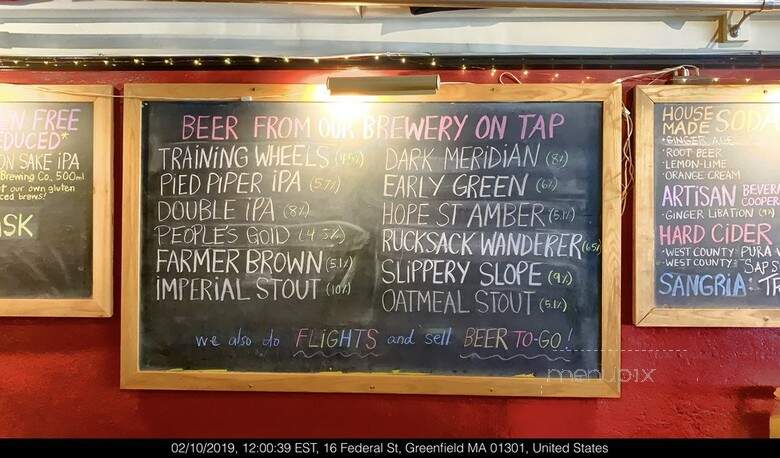 N FREE
DUCED*
ON SAKE iPA
Brewing Co, 500ml
our own gluten
ced brews!
SK
BEER FROM OUR BREWERY ON TAP
TRAiNiNG WHEELS (4.5%)
PiED PiPER iPA (5.7%)
DOUBLE iPA (8%)
PEOPLE'S GOLD (4.5%)
FARMER BROWN (5.1%)
iMPERiAL STOUT (10%)
DARK MERiDiAN (8%)
EARLY GREEN (6%)
HOPE ST AMBER (5.1%)
RUCKSACK WANDERER (6.5%)
SLiPPERY SLOPE (9%)
OATMEAL STOUT (5.1%)
we also do FLiGHTS and sell BEER TO-GO!
HOUSE
MADE SODA
•GINGER ALE
•ROOT BEER
•LEMON-LIME
•ORANGE CREAM
ARTiSAN BEVERA
COOPER
•GINGER LiBATiON (9%)
HARD CiDER
•WEST COUNTY: PURA V
•WEST COUNTY: SAPS
SANGRiA: TR
menupix
02/10/2019, 12:00:39 EST, 16 Federal St, Greenfield MA 01301, United States